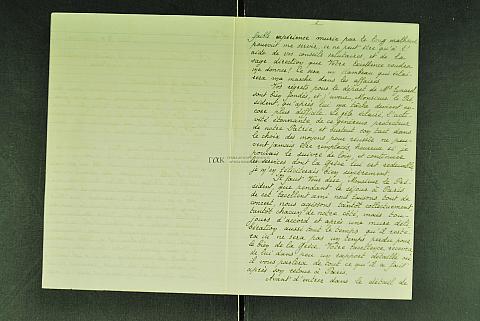 2
faible expérience murie par le long malheur
pouvait me servir, ce ne peut être qu'à l'
aide de vos conseils salutaires et de la
sage direction que Votre Excellence voudra
me donner! Ce sera un flambeau qui éclai-
rera ma marche dans les affaires.
Vos regrets pour le départ de Mr Eynard
sont bien fondés, et j'avoue, Monsieur le Pré
sident, qu'après lui ma tâche devient en-
core plus difficile. Le zèle éclairé, l'acti-
vité étonnante de ce généreux protecteur
de notre Patrie, et surtout son tact dans
le choix des moyens pour réussir ne peu-
vent jamais être remplacés, heureux si je
pouvais le suivre de loin, et continuer
les services dont la Grèce lui est redevable,
je m'en féliciterais bien sincèrement.
Il faut Vous dire, Monsieur le Pré-
sident, que pendant le séjour à Paris
de cet excellent ami nous faisions tout de
concert, nous agissions tantôt collectivement
tantôt chacun de notre côté, mais tou-
jours d'accord et après une mure déli-
bération, aussi tout le temps qu'il reste
ra ici ne sera pas un temps perdu pour
le bien de la Grèce. Votre Excellence, recevra
de lui dans peu un rapport détaillé où
il vous parlera de tout ce qu'il a fait
après son retour à Paris.
Avant d'entrer dans le détail de